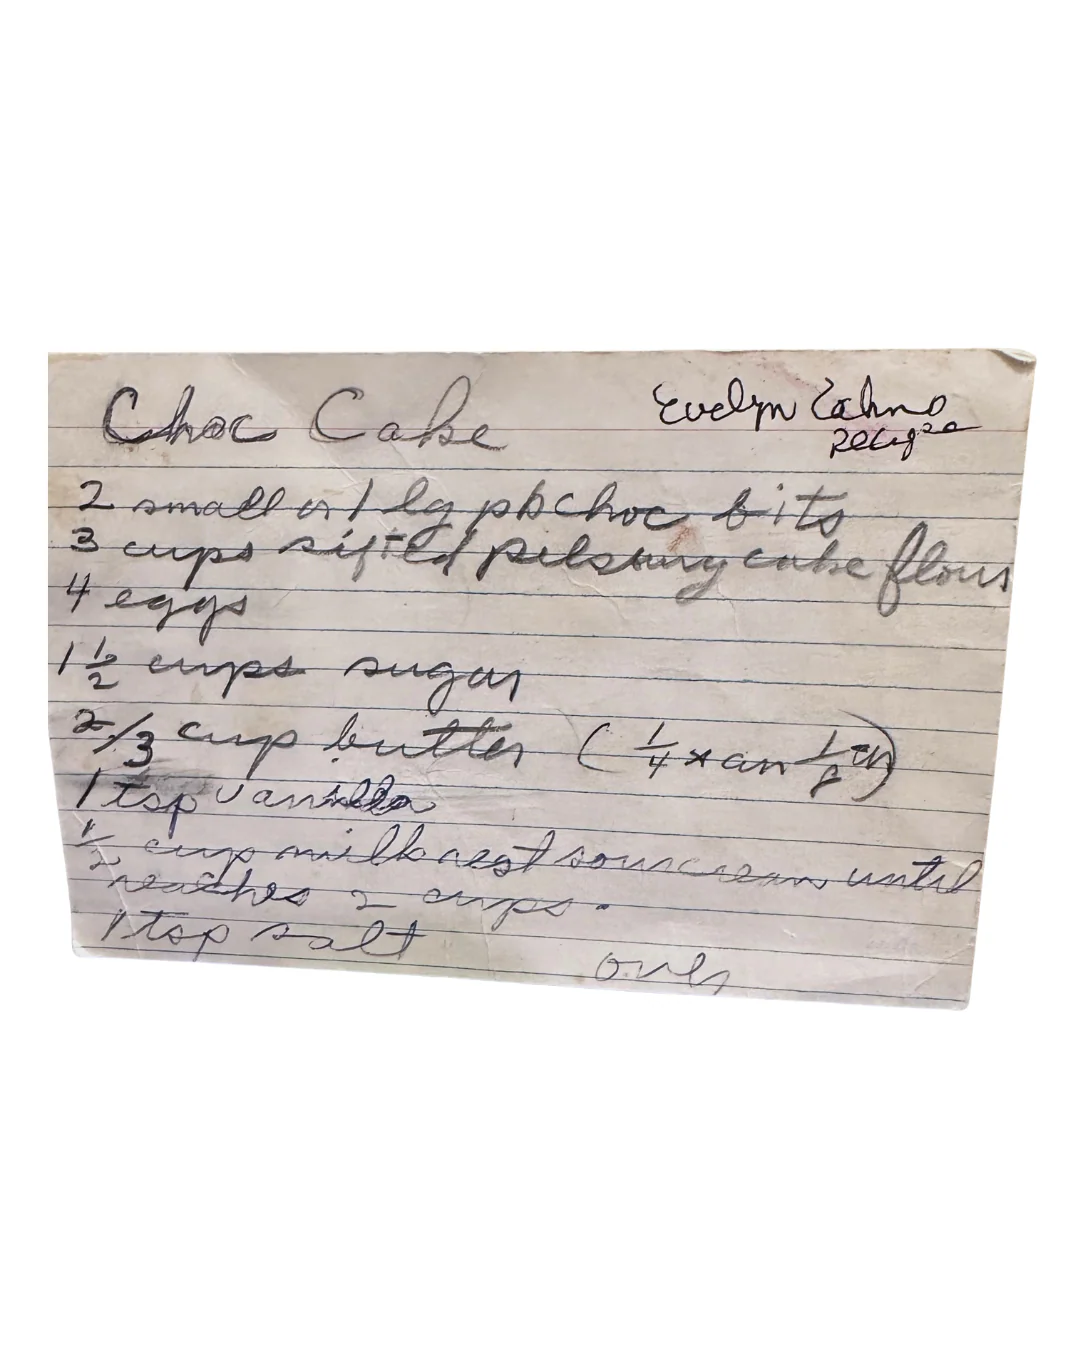 Choc Cake
Evelyn
2 small or 1 lg pk choc bits
3 cups sifted pilsbury cake flour
4 eggs
1 1/2 cups sugar
2/3 cup butter (1/4 x an 1/8
1 tsp vanilla
1/2 cup milk rest sourcream until
reaches 2 cups.
1 tsp salt
over